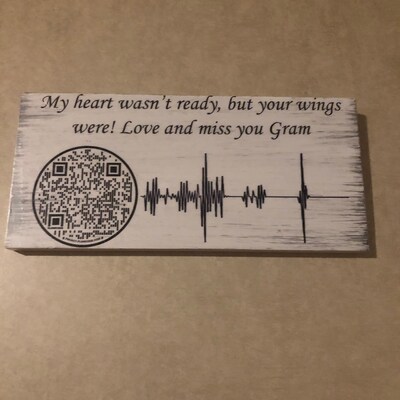 My heart wasn't ready, but your wings
were! Love and miss you Gram